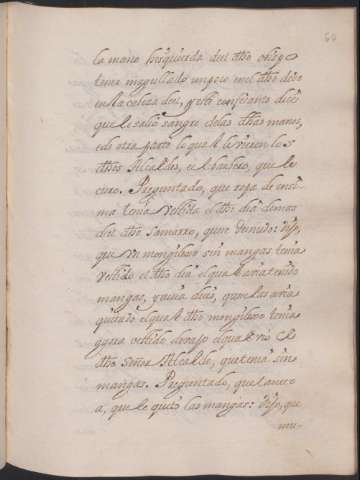 60
la mano hisquierda del dho
tenia magullado un poco en el dho dedo
en la cabeza del, y este confesante dice
que le salia sangre de las dhas manos,
e de otra parte lo qual le vieron los
dhos Alcaldes, e el barbero, que le
curo. Preguntado, que ropa de ensi-
ma tenia vestido el dho dia demas
del dho Samarro, que venido: dijo,
que un mongiluro sin mangas tenia
vestido el dho dia el qual avia tenido
mangas, y avia dias, que se las avia
quitado el qual dho mongiluro tenia
vestido devajo el qual vio el
dho Señor Alcalde, que tenia sin
mangas. Preguntado, que tanto
a, que le quitó las mangas: dijo, que
mu-